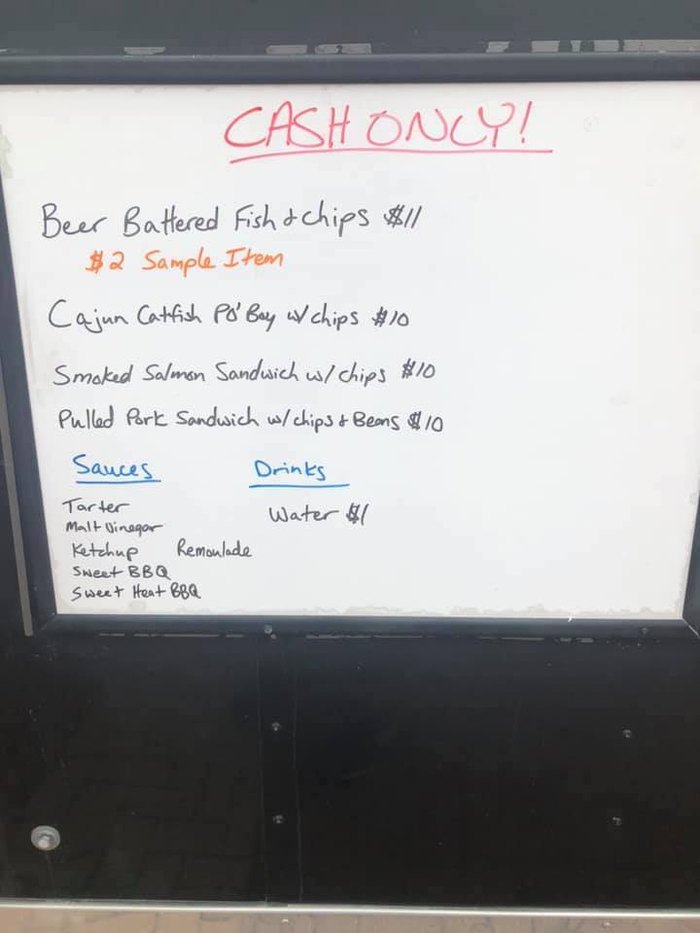 CASH ONLY!
Beer Battered Fish & Chips $11
$2 Sample Item
Cajun Catfish Po'Boy w/chips $10
Smoked Salmon Sandwich w/chips $10
Pulled Pork Sandwich w/chips & Beans $10
Sauces Drinks
Tarter Water $1
Malt Vinegar
Ketchup Remoulade
Sweet BBQ
Sweet Heat BBQ